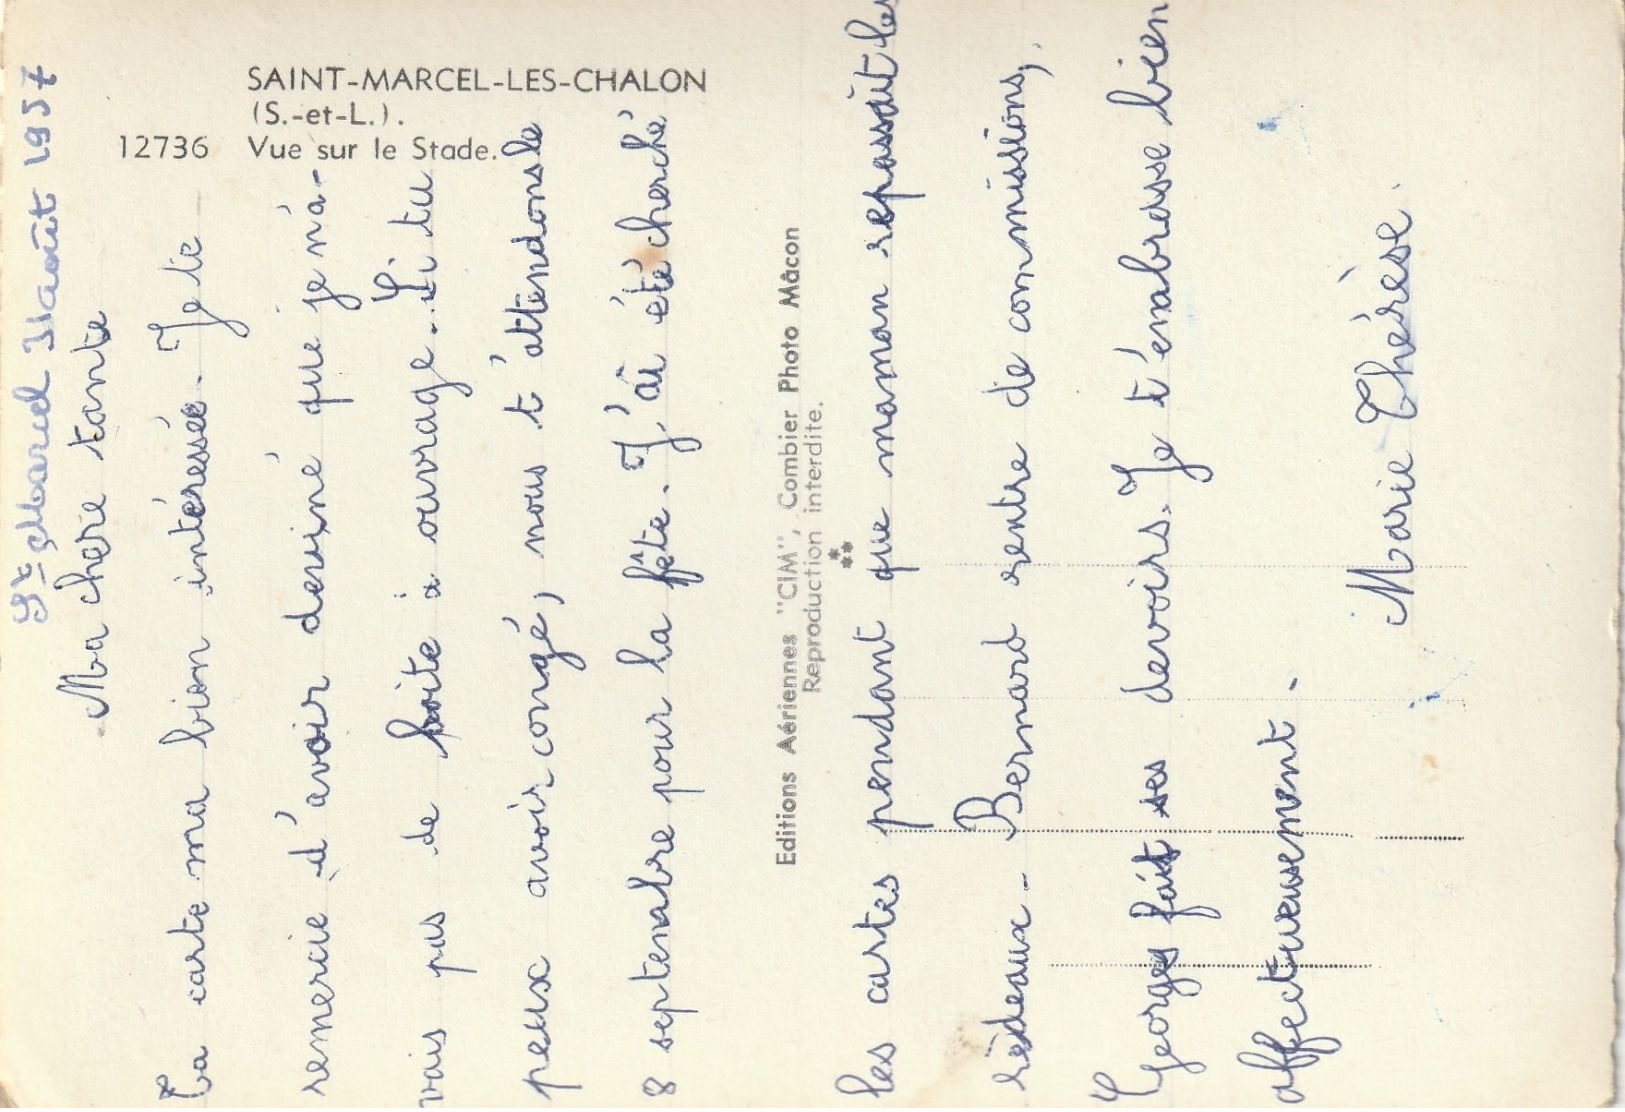 SAINT-MARCEL-LES-CHALON
(S.-et-L.).
12736 Vue sur le Stade.
St Marcel 31 août 1957
Ma chere tante
Ta carte ma bien intéressée. Je te
remercie d'avoir deviné que je n'a-
vais pas de boite à ouvrage. Si tu
peux avoir congé, nous t'attendons le
8 septenabre pour la fête. J'ai été cherché
Editions Aériennes "CIM", Combier Photo Mâcon
Reproduction interdite.
les cartes pendant que maman repassait les
rideaux - Bernard rentre de commissions,
Georges fait ses devoirs. Je t'émabrasse bien
affectueusement.
Marie Thérèse.